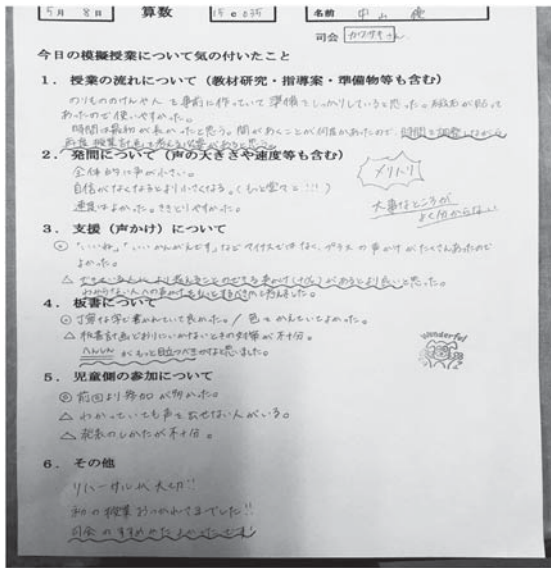 5月 8日 算数 名前 中山
司会
今日の模擬授業について気の付いたこと
1. 授業の流れについて（教材研究・指導案・準備物等も含む）
のりもののけんや人も事前に作っていて準備をしっかりしていると思った。が貼って
あったので使いやすかった。
時間は最初が長かったと思う。間があくことが何度かあったので、時間を調整しながら
授業計画を考える必要があると思う。
2. 発問について（声の大きさや速度等も含む）
全体的に声が小さい。
自信がなくなるとより小さくなる。（もっと堂々と!!!）
速度はよかった。ききとりやすかった。
メリハリ
大事なところが
よく分からない
3. 支援（声かけ）について
◎"いいね"、"いいかんがえです"などマイナスではなく、プラスの声かけがたくさんあったので
よかった。
△
わからない人への声かけも
4. 板書について
◎丁寧な字で書かれていて良かった。/ 色もかんたんでよかった。
△板書計画どおりにいかないときの対策が不十分。
がもっと目立つべきかなと思いました。
wonderful
5. 児童側の参加について
◎前回より参加が多かった。
△わかっていても声を出せない人がいる。
△発表のしかたが不十分。
6. その他
リハーサルが大切!!
初の授業おつかれさまでした!!
司会のすすめかたよかったです!